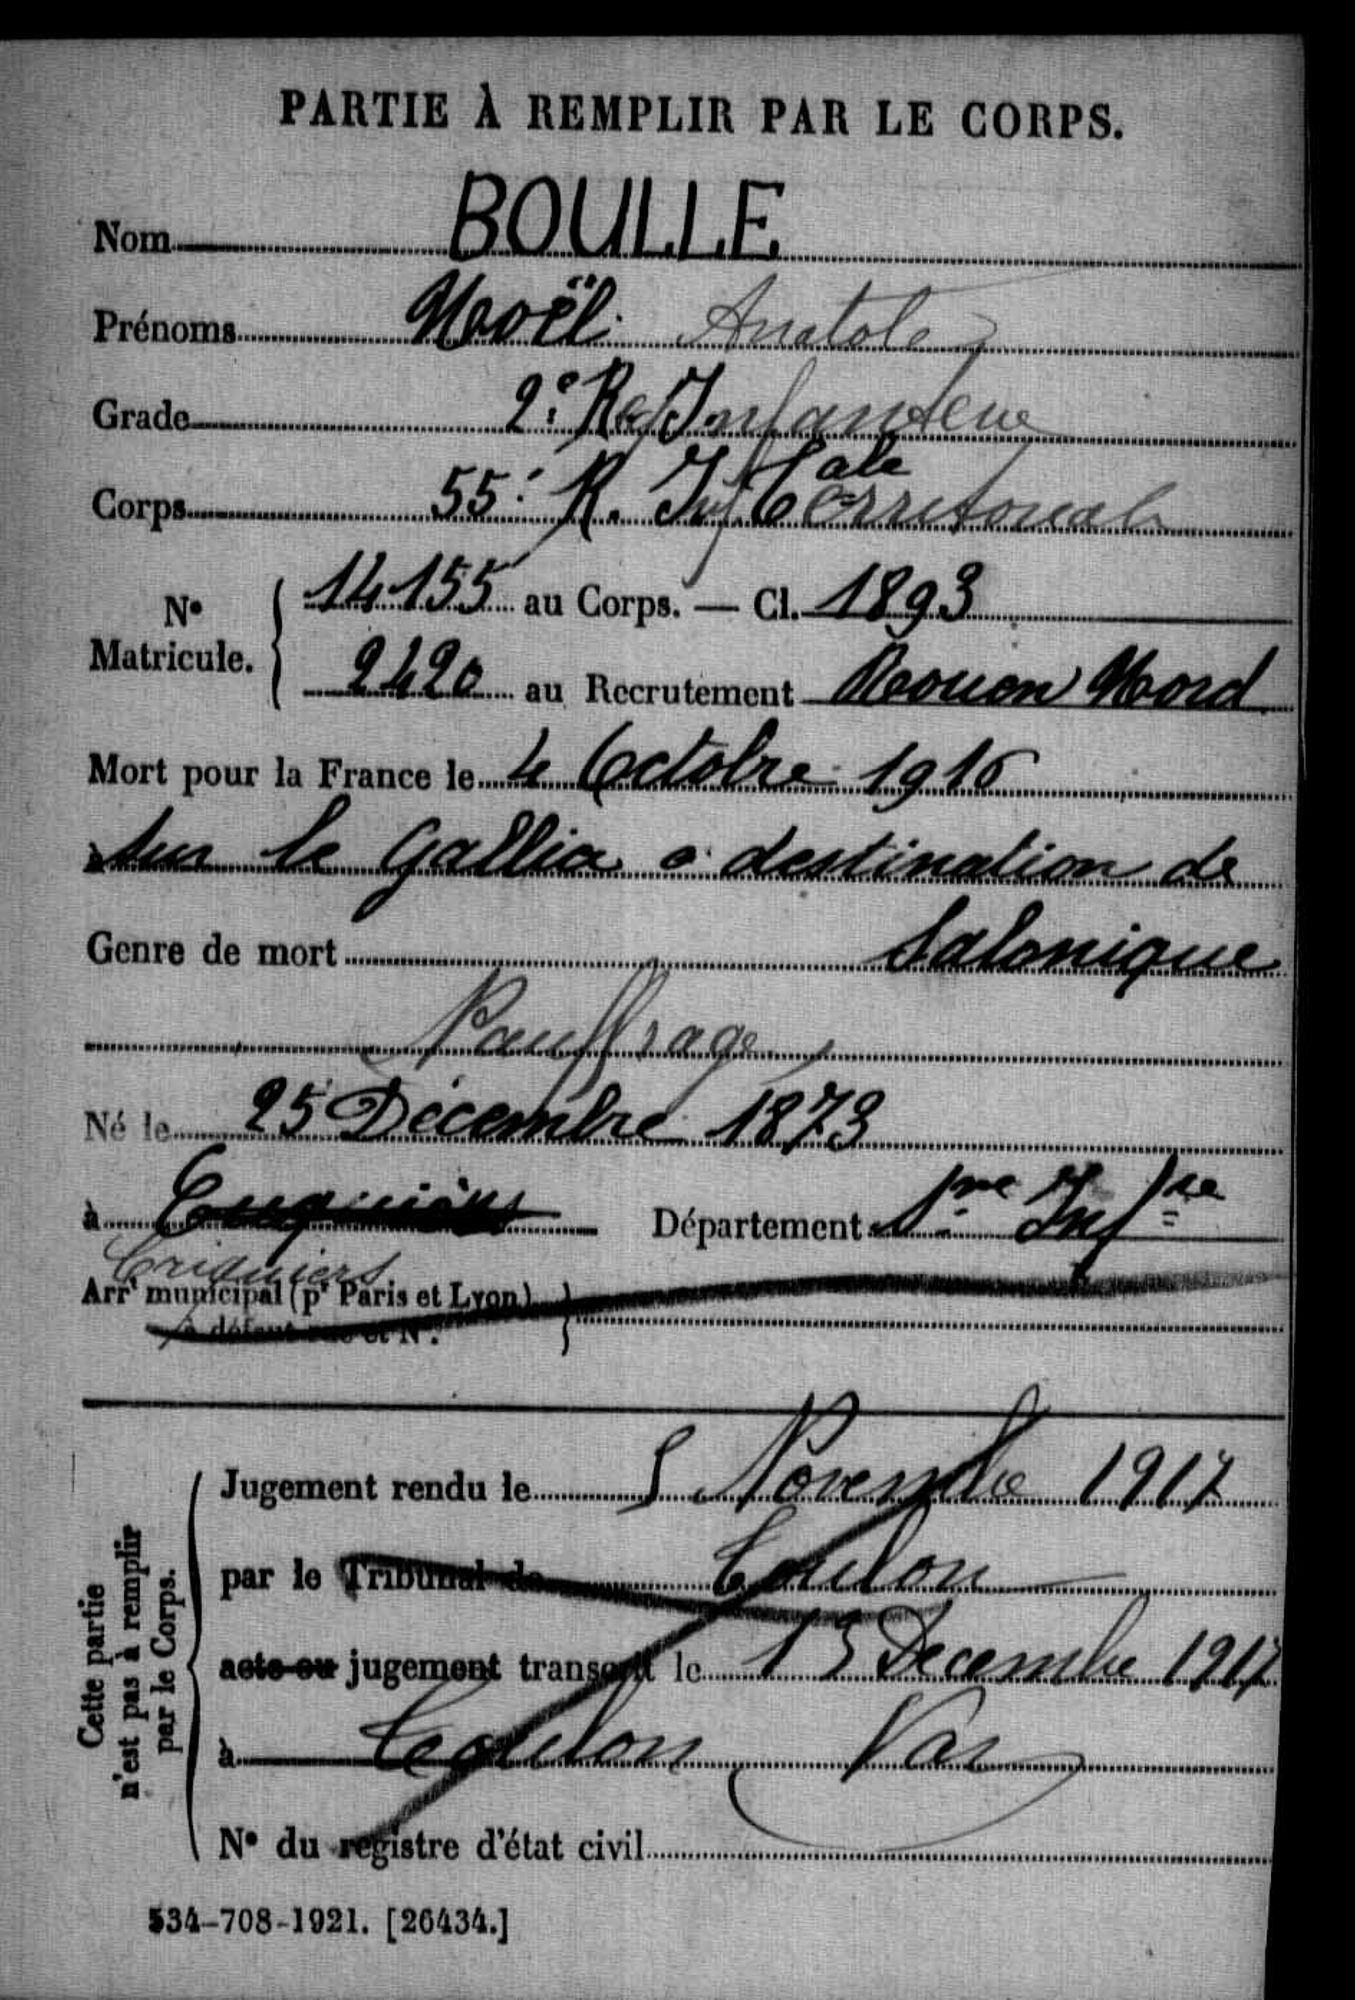 PARTIE À REMPLIR PAR LE CORPS.
Nom BOULLE
Prénoms Noël Anatole
Grade 2e Infanterie
Corps 55e R. Inf Cale Territorial
No Matricule. 14155 au Corps. — Cl. 1893
2420 au Recrutement Rouen Nord
Mort pour la France le 4 Octobre 1916
à sur le Gallia à destination de
Genre de mort Salonique
Nauffrage
Né le 25 Décembre 1873
à Département Sne Infre
Criquiers
Arrt municipal (pr Paris et Lyon)
à défaut rue et No.
Jugement rendu le 5 Novembre 1917
par le Tribunal de Toulon
acte ou jugement transcrit le 13 Décembre 1917
à Toulon Var
No du registre d'état civil
Cette partie
n'est pas à remplir
par le Corps.
534-708-1921. [26434.]